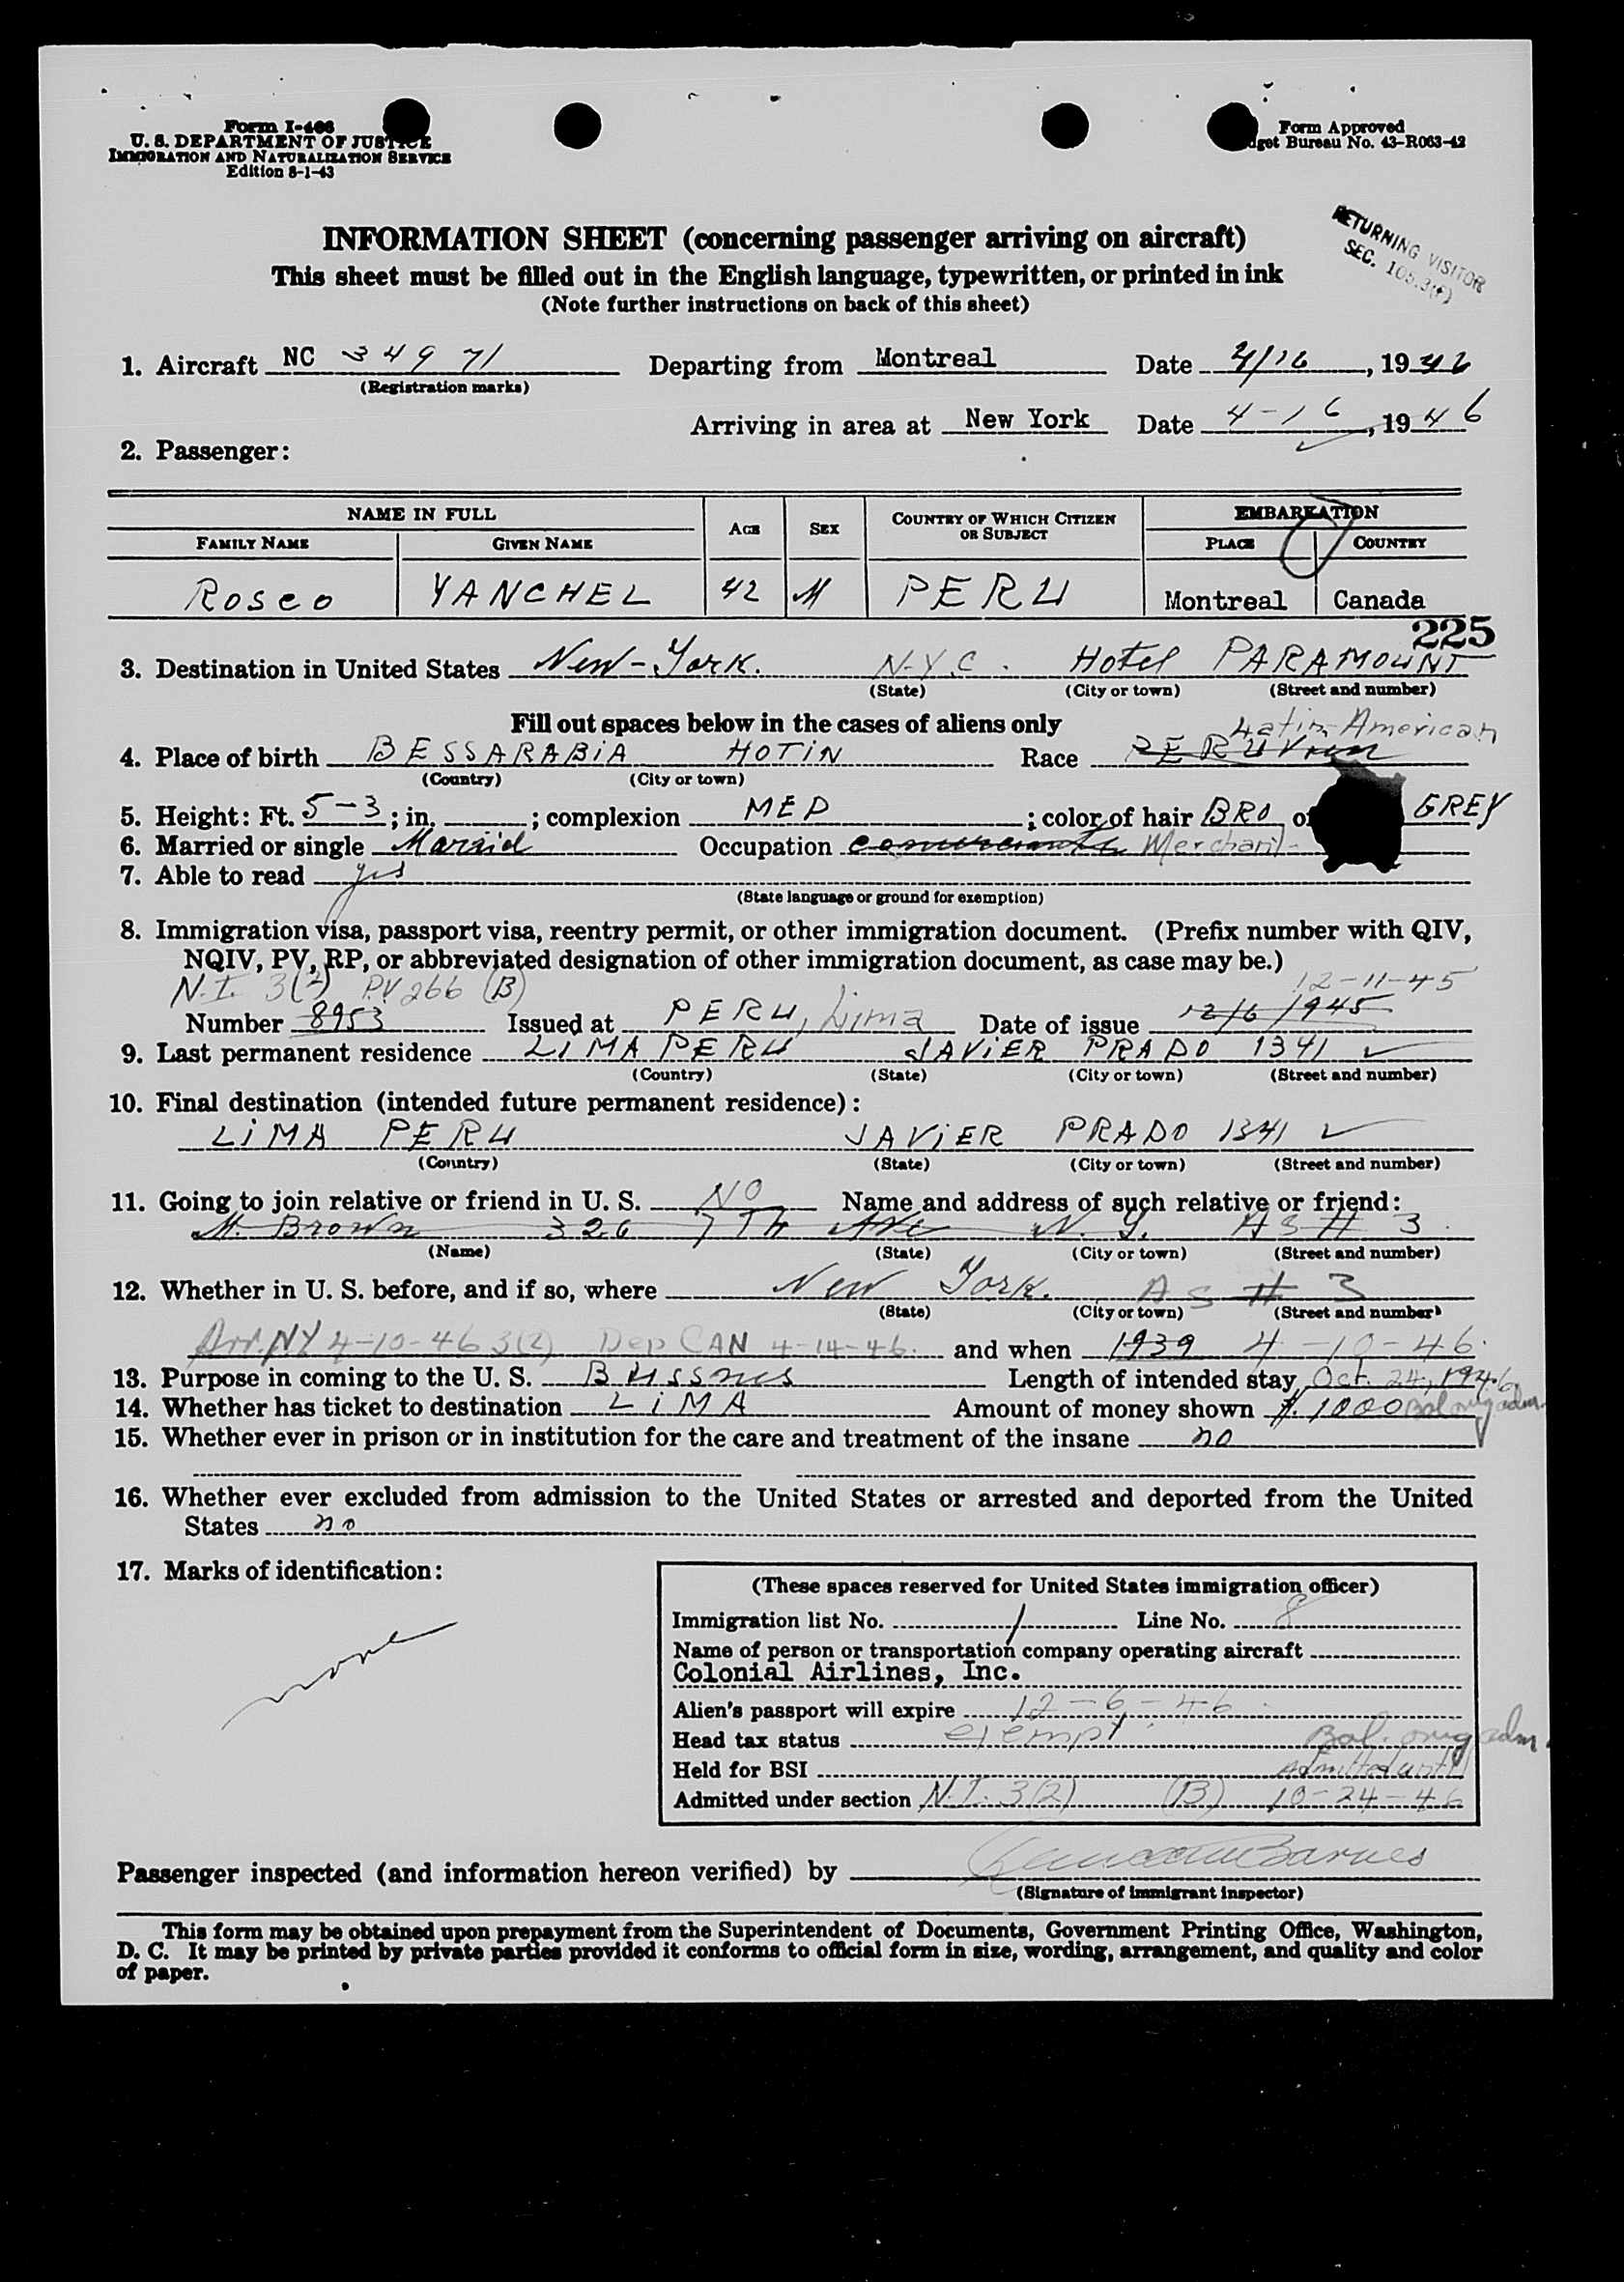 Form I-466
U. S. DEPARTMENT OF JUSTICE
IMMIGRATION AND NATURALIZATION SERVICE
Edition 8-1-43
Form Approved
dget Bureau No. 43-R063-42
RETURNING VISITOR
SEC. 105.3(f)
INFORMATION SHEET (concerning passenger arriving on aircraft)
This sheet must be filled out in the English language, typewritten, or printed in ink
(Note further instructions on back of this sheet)
1. Aircraft NC 34971 Departing from Montreal Date 4/16, 1946
(Registration marks)
Arriving in area at New York Date 4-16, 1946
2. Passenger:
NAME IN FULL AGE SEX COUNTRY OF WHICH CITIZEN OR SUBJECT EMBARKATION
FAMILY NAME GIVEN NAME PLACE COUNTRY
Rosco YANCHEL 42 M PERU Montreal Canada
225
3. Destination in United States New-York. N.Y.C. Hotel PARAMOUNT
(State) (City or town) (Street and number)
Fill out spaces below in the cases of aliens only
Latin-American
4. Place of birth BESSARABIA HOTIN Race PERUvian
(Country) (City or town)
5. Height: Ft. 5-3; in. ; complexion MED ; color of hair BRO of GREY
6. Married or single Marrid Occupation Merchant
7. Able to read yes
(State language or ground for exemption)
8. Immigration visa, passport visa, reentry permit, or other immigration document. (Prefix number with QIV,
NQIV, PV, RP, or abbreviated designation of other immigration document, as case may be.)
N.I. 3(2) PV 266 (B) 12-11-45
Number 8953 Issued at PERU, Lima Date of issue 12/6/1945
9. Last permanent residence LIMA PERU JAVIER PRADO 1341
(Country) (State) (City or town) (Street and number)
10. Final destination (intended future permanent residence):
LIMA PERU JAVIER PRADO 1341
(Country) (State) (City or town) (Street and number)
11. Going to join relative or friend in U. S. NO Name and address of such relative or friend:
M. Brown 326 7Th Ave N. Y. AS # 3
(Name) (State) (City or town) (Street and number)
12. Whether in U. S. before, and if so, where New York. AS # 3
(State) (City or town) (Street and number)
Arr. NY 4-10-46 3(2) Dep CAN 4-14-46. and when 1939 4-10-46.
13. Purpose in coming to the U. S. Bussnes Length of intended stay Oct. 24, 1946
14. Whether has ticket to destination LIMA Amount of money shown $. 1000 Bal orig adm.
15. Whether ever in prison or in institution for the care and treatment of the insane no
16. Whether ever excluded from admission to the United States or arrested and deported from the United
States no
17. Marks of identification:
none
(These spaces reserved for United States immigration officer)
Immigration list No. 1 Line No. 8
Name of person or transportation company operating aircraft
Colonial Airlines, Inc.
Alien's passport will expire 12-6-46.
Head tax status exempt. Bal. orig adm.
Held for BSI Admitted until
Admitted under section N.I. 3(2) (B) 10-24-46
Passenger inspected (and information hereon verified) by Barnes
(Signature of immigrant inspector)
This form may be obtained upon prepayment from the Superintendent of Documents, Government Printing Office, Washington,
D. C. It may be printed by private parties provided it conforms to official form in size, wording, arrangement, and quality and color
of paper.